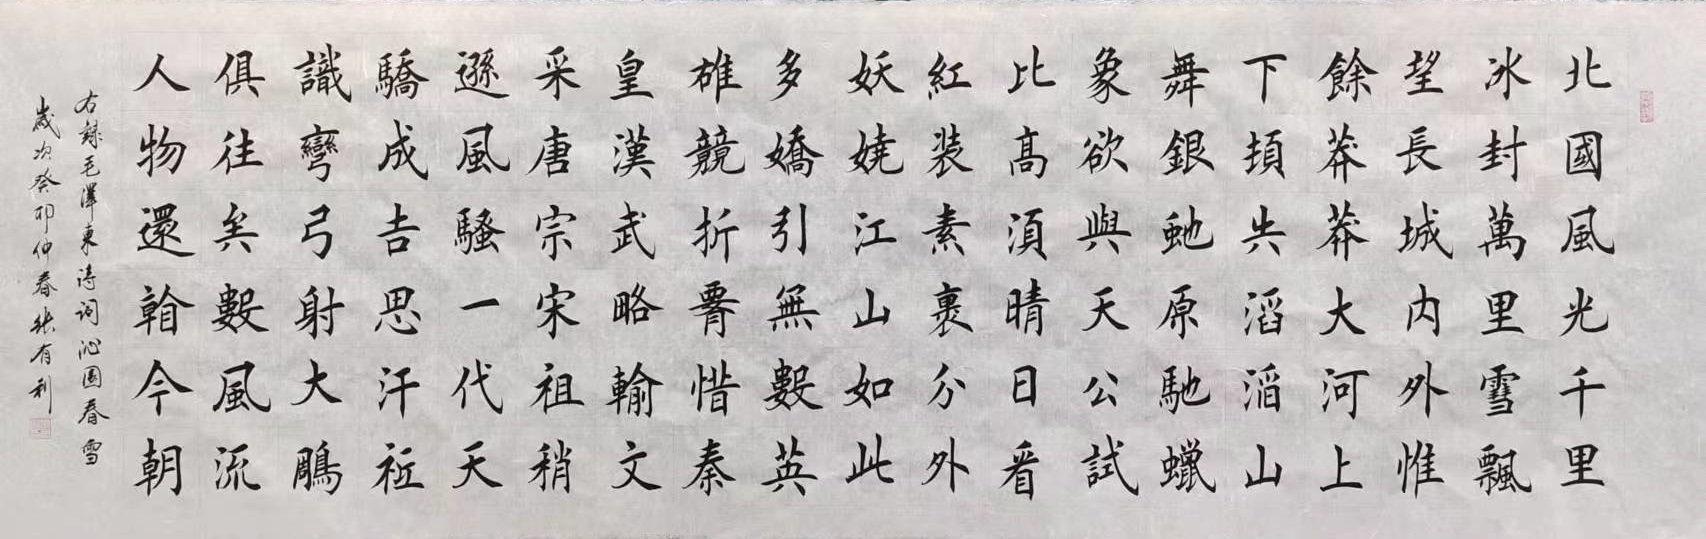 北國風光千里
冰封萬里雪飄
望長城内外惟
餘莽莽大河上
下頓失滔滔山
舞銀虵原馳蠟
象欲與天公試
比高須晴日看
紅装素裹分外
妖嬈江山如此
多嬌引無數英
雄競折腰惜秦
皇漢武略輸文
采唐宗宋祖稍
遜風騷一代天
驕成吉思汗祗
識彎弓射大鵰
俱往矣數風流
人物還看今朝
右録毛澤東詩詞沁園春雪
歲次癸卯仲春張有利